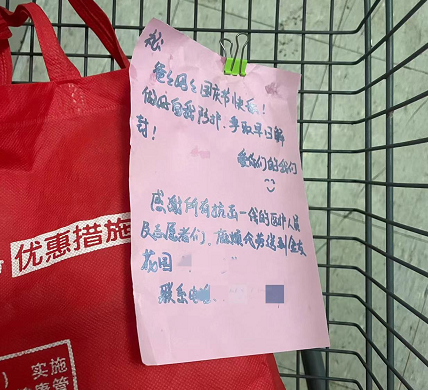 爸爸妈妈国庆节快乐!
做好自我防护,争取早日解
封!
爱你们的我们
感谢所有抗击一线的医护人员
及志愿者们,麻烦代劳送到金友
花园
联系电话
优惠措施
)实施
康管